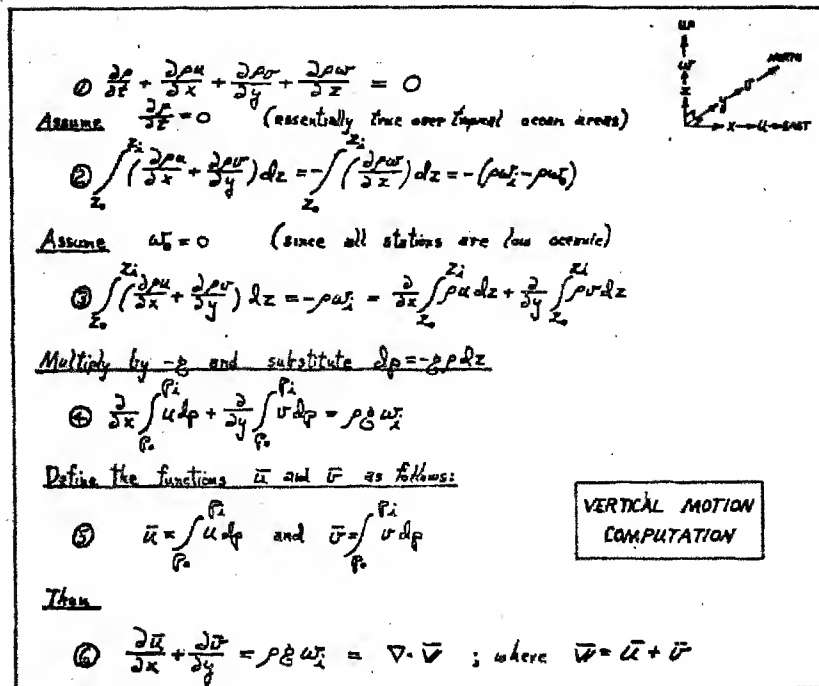 UP
w
z
y
v
NORTH
x → u → EAST
① ∂ρ/∂t + ∂ρu/∂x + ∂ρv/∂y + ∂ρw/∂z = 0
Assume ∂ρ/∂t = 0 (essentially true over tropical ocean areas)
② ∫_{z₀}^{z_i} (∂ρu/∂x + ∂ρv/∂y) dz = -∫_{z₀}^{z_i} (∂ρw/∂z) dz = -(ρw_i - ρw₀)
Assume w₀ = 0 (since all stations are low oceanic)
③ ∫_{z₀}^{z_i} (∂ρu/∂x + ∂ρv/∂y) dz = -ρw_i = ∂/∂x ∫_{z₀}^{z_i} ρu dz + ∂/∂y ∫_{z₀}^{z_i} ρv dz
Multiply by -g and substitute dp = -gρdz
④ ∂/∂x ∫_{P₀}^{P_i} u dp + ∂/∂y ∫_{P₀}^{P_i} v dp = ρg w_i
Define the functions ū and v̄ as follows:
⑤ ū = ∫_{P₀}^{P_i} u dp and v̄ = ∫_{P₀}^{P_i} v dp
VERTICAL MOTION
COMPUTATION
Then
⑥ ∂ū/∂x + ∂v̄/∂y = ρg w_i = ∇·V̄ ; where V̄ = ū + v̄